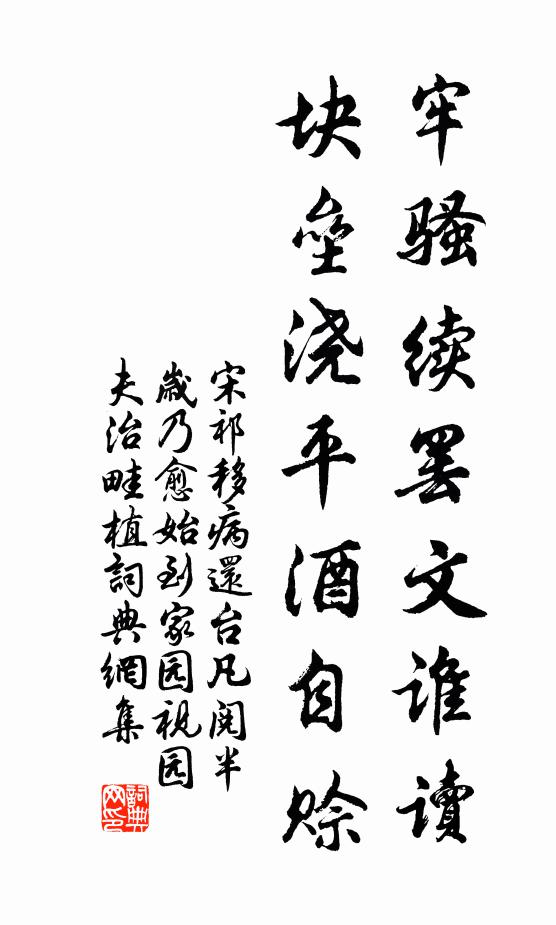 牢骚续罢文谁读
块垒浇平酒自赊
宋祁移病還台凡阅半
歲乃愈始到家园视园
夫治畦植詞典網集
詞典网印